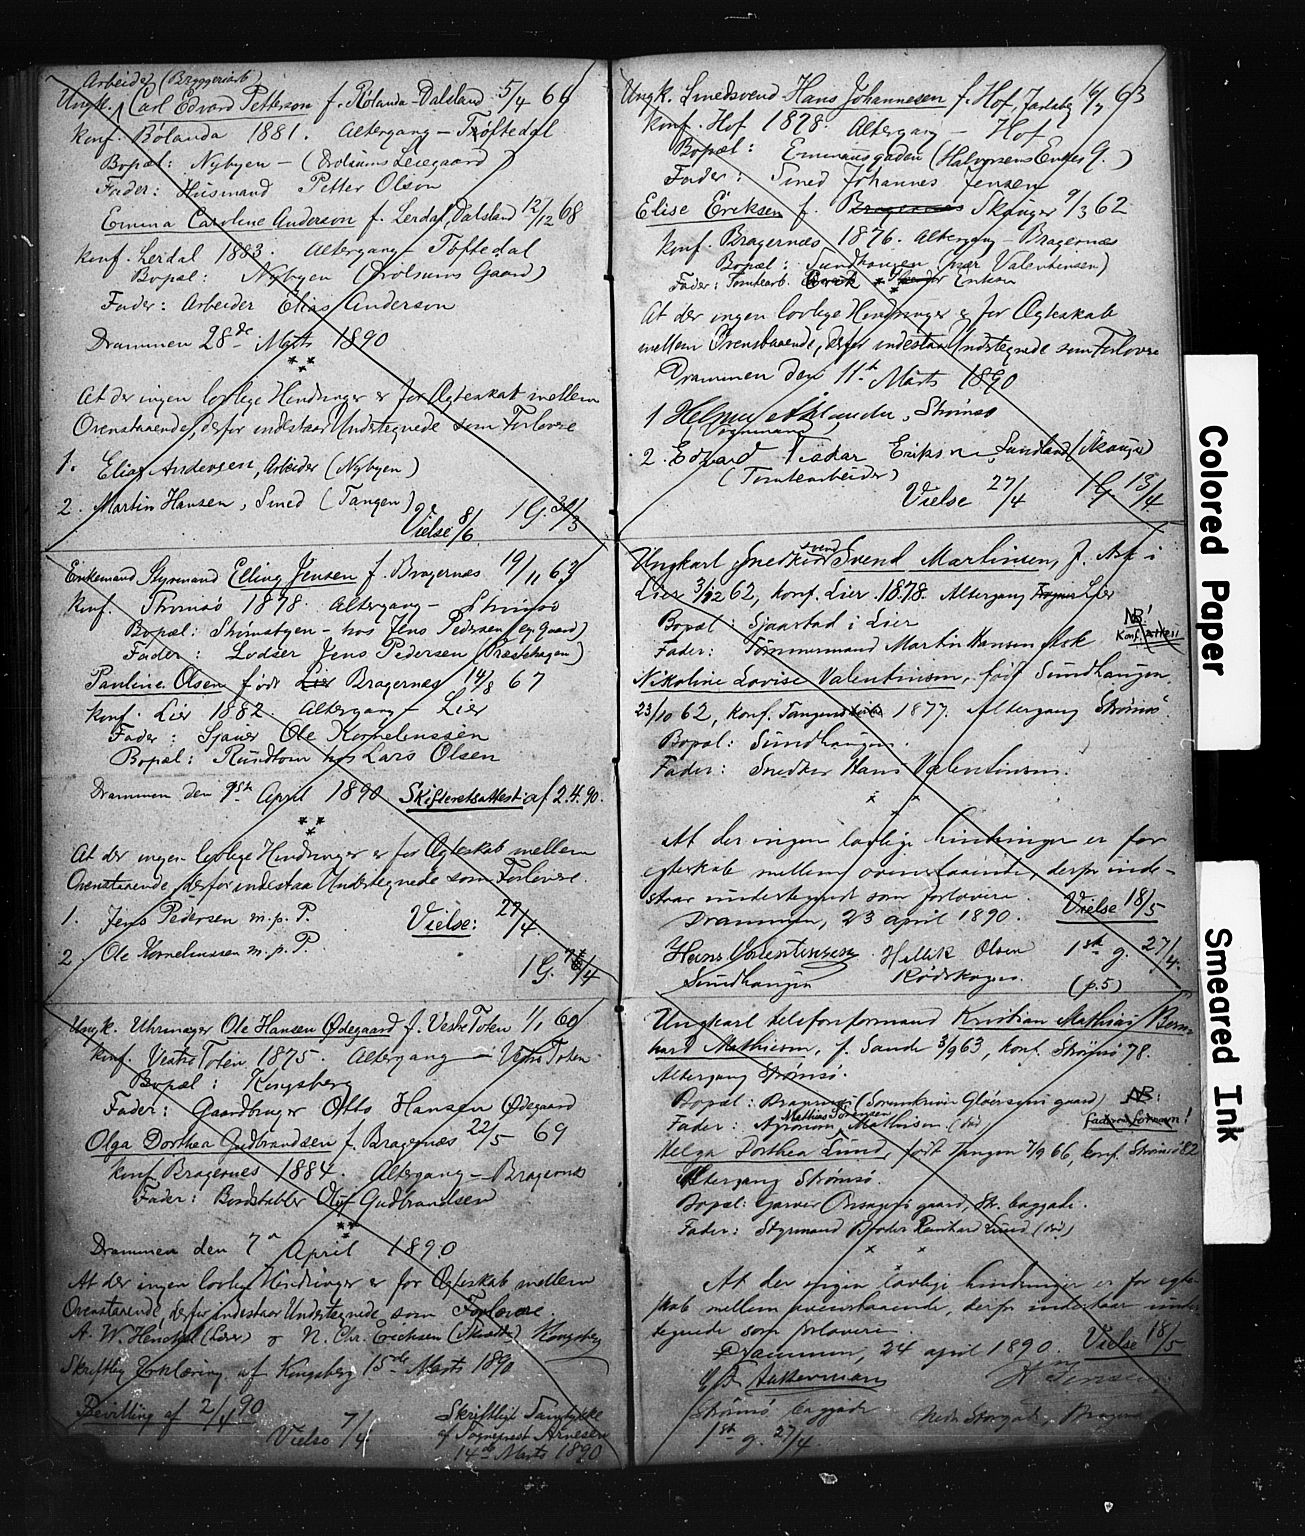 Arbeider (Bryggeriarb)
Ungk. Carl Edvard Petterson f. Rölanda-Dalsland 5/4 66
konf. Bölanda 1881. Altergang – Tøftedal
Bopæl: Nybyen – (
Fader: Husmand Petter Olson
Emma Caroline Anderson f. Lerdal, Dalsland 12/12 68
konf. Lerdal 1883. Altergang – Tøftedal
Bopæl: Nybyen ( Gaard)
Fader: Arbeider Elias Anderson
Drammen 28de Marts 1890
At der ingen lovlige Hindringer er for Ægteskab mellem
Ovenstaaende, derfor indestaar Undertegnede som Forlovere
1. Elias Andersen, Arbeider (Nybyen)
2. Martin Hansen, Smed (Tangen)
Vielse 8/6 1 G. 30/3
Enkemand Styrmand Elling Jensen f. Bragernes 19/11 63
konf. Strømsø 1878. Altergang – Strømsø
Bopæl: Strømsbyen – hos Jens Pedersen (eg Gaard)
Fader: Lodser Jens Pedersen (Præstehagen)
Pauline Olsen født Lier Bragernes 14/8 67
konf. Lier 1882. Altergang – Lier
Fader: Sjauer Ole Kornelinssen
Bopæl: Rundtom hos Lars Olsen
Drammen den 9de April 1890 Skifteretsattest af 2.4.90.
At der ingen lovlige Hindringer er for Ægteskab mellem
Ovenstaaende, derfor indestaa Undertegnede som Forlovere.
1. Jens Pedersen m.p.P. Vielse: 27/4
2. Ole Kornelinssen m.p.P.
1 G. /4
Ungk. Uhrmager Ole Hansen Ødegaard f. Vestre Toten 1/1 60
konf. Vestre Toten 1875. Altergang – Vestre Toten
Bopæl: Kongsberg
Fader: Gaardbruger Otto Hansen Ødegaard
Olga Dorthea Gudbrandsen f. Bragernes 22/5 69
konf. Bragernes 1884. Altergang – Bragernes
Fader: Bundtløber Oluf Gudbrandsen
Drammen den 7de April 1890
At der ingen lovlige Hindringer er for Ægteskab mellem
Ovenstaaende, derfor indestaar Undertegnede som Forlovere.
A. W. & N. Chr. Erichsen Kongsberg
Skriftlig Erklæring af Kongsberg 15de Marts 1890
Bevilling af 2/4 90
Vielse 7/4
Skriftligt Samtykke
af Sognepræst Arnesen
14de Marts 1890
Ungk. Smedsvend Hans Johannesen f. Hof, Jarlsberg 16/7 63
konf. Hof 1878. Altergang – Hof
Bopæl: Emmausgaden (Halvorsens Enkes G.)
Fader: Smed Johannes Jensen
Elise Eriksen f. Bragernes Skouger 9/3 62
konf. Bragernes 1876. Altergang – Bragernes
Bopæl: Sundhaugen (nær Valentinsen)
Fader: Tomtearb. Eriksen
At der ingen lovlige Hindringer er for Ægteskab
mellem Ovenstaaende, derfor indestaar Undertegnede som Forlovere
Drammen den 11te Marts 1890
1 Strømsø
Vognmand
2. Edvard Eriksen, Sundland (Skouger)
(Tomtearbeider)
Vielse 27/4 1 G. 13/4
Ungkarl Snedkersvend Svend Martinsen, f. Ask i
Lier 3/12 62, konf. Lier 1878. Altergang Lier
Bopæl: Sjaastad i Lier
NB!
Konf. attest
Fader: Tømmermand Martin Hansen Ask
Nikoline Lovise Valentinsen, født Sundhaugen,
23/10 62, konf. Tangen 1877. Altergang Strømsø.
Bopæl: Sundhaugen.
Fader: Snedker Hans Valentinsen.
At der ingen lovlige hindringer er for
egteskab mellem ovenstaaende, derfor inde-
staar undertegnede som forlovere.
Drammen, 23 april 1890. Vielse 18/5
Hans Valentinsen Hellik Olsen 1ste g. 27/4.
Sundhaugen Rødskogen. (p.5)
Ungkarl telefonformand Kristian Mathias Bern-
hard Mathiesen, f. Sande 3/9 63, konf. Strømsø 78.
Altergang Strømsø.
Bopæl: Bragernes gaard) NB:
Mathias Sörensen
Fader: Agronom, Mathisen (død) faderens fornavn!
Helga Dorthea Lund, født Tangen 7/9 66, konf. Strømsø 82
Altergang Strømsø.
Bopæl: Garver gaard, Str. baggade.
Fader: Styrmand Reinhard Lund (død)
At der ingen lovlige hindringer er for egte-
skab mellem ovenstaaende, derfor indestaar under
tegnede som forlovere.
Drammen, 24 april 1890. Vielse 18/5
Ankerman Jensen
Strømsø baggade Nedre Storgade, Bragernes
1ste g. 27/4.
Colored Paper
Smeared Ink